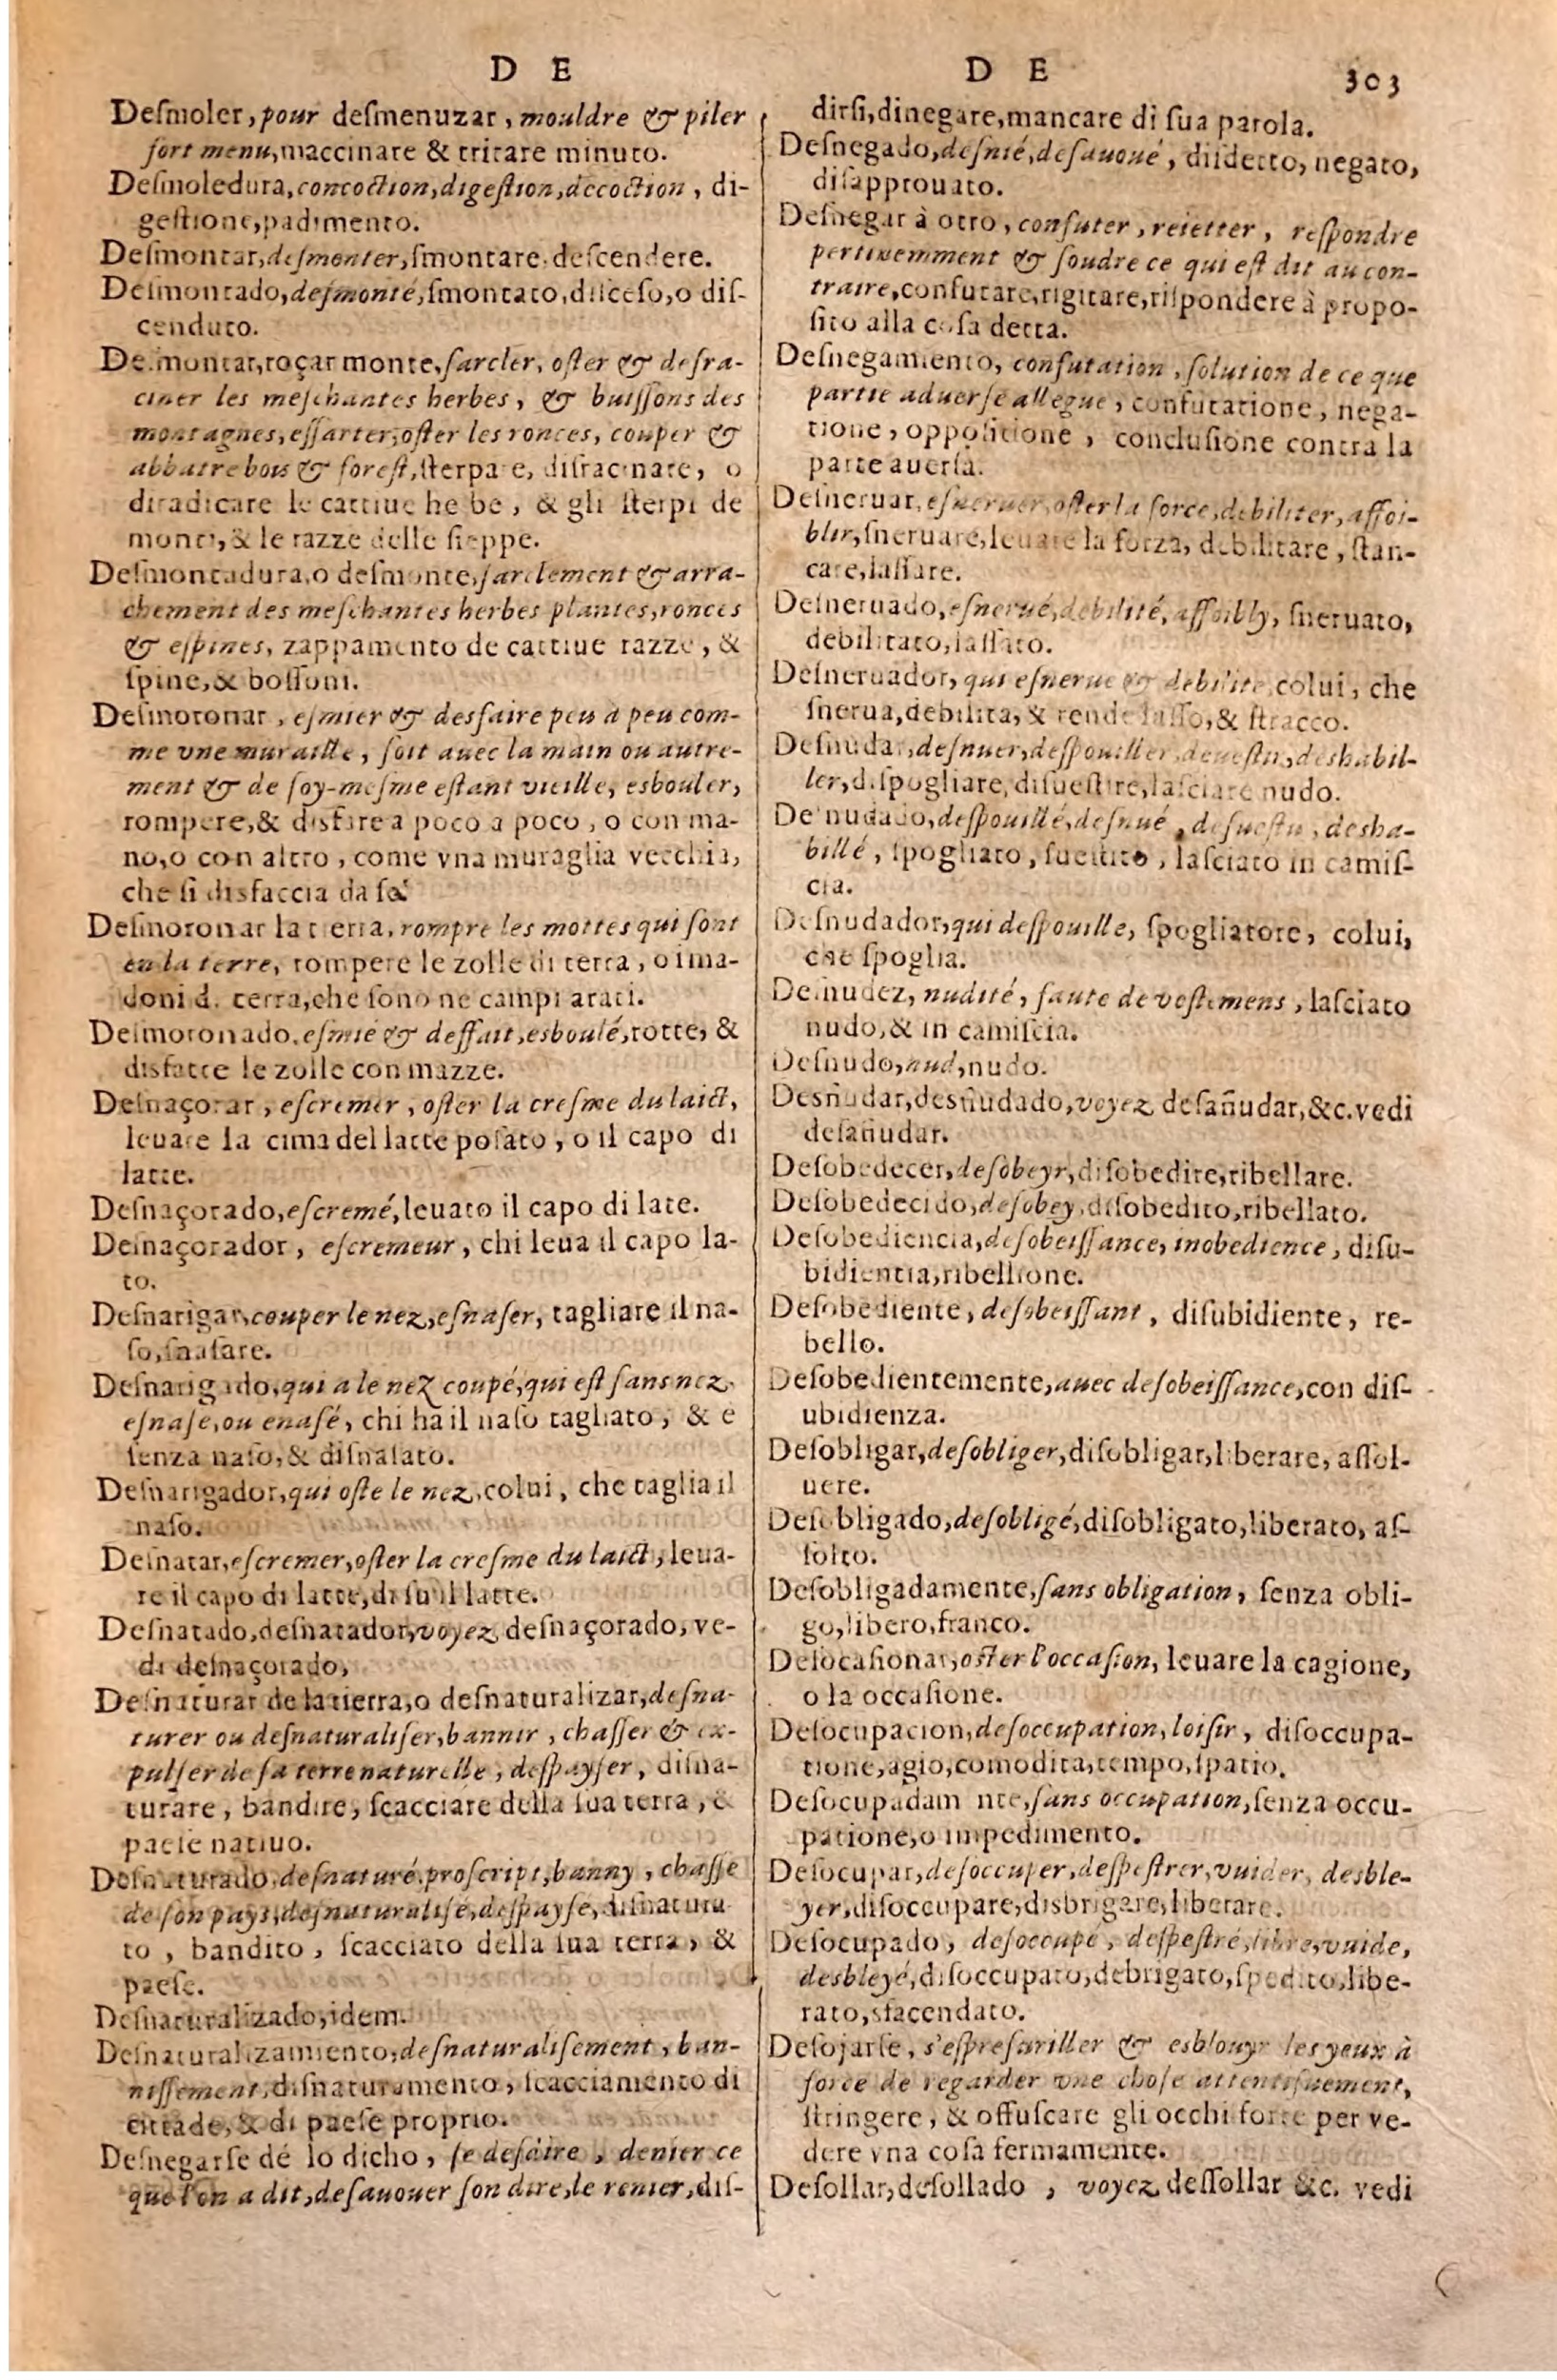 D E
D E
303
Deſmoler, pour deſmenuzar, mouldre & piler
fort menu, maccinare & tritare minuto.
Deſmoledura, concoction, digeſtion, decoction, di-
geſtione, padimento.
Deſmontar, deſmonter, ſmontare, deſcendere.
Deſmontado, deſmonté, ſmontato, diſceſo, o diſ-
cenduto.
Deſmontar, roçar monte, ſarcler, oſter & deſra-
ciner les meſchantes herbes, & buiſſons des
montagnes, eſſarter, oſter les ronces, couper &
abbatre bois & foreſt, ſterpare, diſracinare, o
diradicare le cattiue herbe, & gli ſterpi de
monti, & le razze delle ſieppe.
Deſmontadura, o deſmonte, ſarclement & arra-
chement des meſchantes herbes plantes, ronces
& eſpines, zappamento de cattiue razze, &
ſpine, & boſſoni.
Deſmoronar, eſmier & desfaire peu a peu com-
me vne muraille, ſoit auec la main ou autre-
ment & de ſoy-meſme eſtant vieille, esbouler,
rompere, & disfare a poco a poco, o con ma-
no, o con altro, come vna muraglia vecchia,
che ſi disfaccia da ſe.
Deſmoronar la tierra, rompre les mottes qui ſont
en la terre, rompere le zolle di terra, o i ma-
doni di terra, che ſono ne campi arati.
Deſmoronado, eſmié & deffait, esboulé, rotte, &
disfatte le zolle con mazze.
Deſnaçorar, eſcremer, oſter la creſme du laict,
leuare la cima del latte poſato, o il capo di
latte.
Deſnaçorado, eſcremé, leuato il capo di late.
Deſnaçorador, eſcremeur, chi leua il capo la-
to.
Deſnarigar, couper le nez, eſnaſer, tagliare il na-
ſo, ſnaſare.
Deſnarigado, qui a le nez coupé, qui eſt ſans nez,
eſnaſe, ou enaſé, chi ha il naſo tagliato, & e
ſenza naſo, & diſnaſato.
Deſnarigador, qui oſte le nez, colui, che taglia il
naſo.
Deſnatar, eſcremer, oſter la creſme du laict, leua-
re il capo di latte, di ſu il latte.
Deſnatado, deſnatador, voyez deſnaçorado, ve-
di deſnaçorado,
Deſnaturar de la tierra, o deſnaturalizar, deſna-
turer ou deſnaturaliſer, bannir, chaſſer & ex-
pulſer de ſa terre naturelle, deſpayſer, diſna-
turare, bandire, ſcacciare della ſua terra, &
paeſe natiuo.
Deſnaturado, deſnaturé, proſcript, banny, chaſſe
de ſon pays, deſnaturaliſé, deſpayſe, diſnatura
to, bandito, ſcacciato della ſua terra, &
paeſe.
Deſnaturalizado, idem.
Deſnaturalizamiento, deſnaturaliſement, ban-
niſſement, diſnaturamento, ſcacciamento di
cittade, & di paeſe proprio.
Deſnegarſe dé lo dicho, ſe deſdire, denier ce
que l'on a dit, deſauouer ſon dire, le renier, diſ-
dirſi, dinegare, mancare di ſua parola.
Deſnegado, deſnié, deſauoué, diſdetto, negato,
diſapprouato.
Deſnegar à otro, confuter, reietter, reſpondre
pertinemment & ſoudre ce qui eſt dit au con-
traire, confutare, rigitare, riſpondere à propo-
ſito alla coſa detta.
Deſnegamiento, confutation, ſolution de ce que
partie aduerſe allegue, confutatione, nega-
tione, oppoſitione, concluſione contra la
parte auerſa.
Deſneruar, eſneruer, oſter la force, debiliter, affoi-
blir, ſneruare, leuare la forza, debilitare, ſtan-
care, laſſare.
Deſneruado, eſnerué, debilité, affoibly, ſneruato,
debilitato, laſſato.
Deſneruador, qui eſnerue & debilite, colui, che
ſnerua, debilita, & rende laſſo, & ſtracco.
Deſnudar, deſnuer, deſpouiller, deueſtir, deshabil-
ler, diſpogliare, diſueſtire, laſciare nudo.
Deſnudado, deſpouillé, deſnué, deſueſtu, desha-
billé, ſpogliato, ſueſtito, laſciato in camiſ-
cia.
Deſnudador, qui deſpouille, ſpogliatore, colui,
che ſpoglia.
Deſnudez, nudité, faute de veſtemens, laſciato
nudo, & in camiſcia.
Deſnudo, nud, nudo.
Desñudar, desñudado, voyez deſañudar, &c. vedi
deſañudar.
Deſobedecer, deſobeyr, diſobedire, ribellare.
Deſobedecido, deſobey, diſobedito, ribellato.
Deſobediencia, deſobeiſſance, inobedience, diſu-
bidientia, ribellione.
Deſobediente, deſobeiſſant, diſubidiente, re-
bello.
Deſobedientemente, auec deſobeiſſance, con diſ-
ubidienza.
Deſobligar, deſobliger, diſobligar, liberare, aſſol-
uere.
Deſobligado, deſobligé, diſobligato, liberato, aſ-
ſolto.
Deſobligadamente, ſans obligation, ſenza obli-
go, libero, franco.
Deſocaſionar, oſter l'occaſion, leuare la cagione,
o la occaſione.
Deſocupacion, deſoccupation, loiſir, diſoccupa-
tione, agio, comodita, tempo, ſpatio.
Deſocupadam nte, ſans occupation, ſenza occu-
patione, o impedimento.
Deſocupar, deſoccuper, deſpeſtrer, vuider, desble-
yer, diſoccupare, disbrigare, liberare.
Deſocupado, deſoccupé, deſpeſtré, libre, vuide,
desbleyé, diſoccupato, debrigato, ſpedito, libe-
rato, sfacendato.
Deſojarſe, s'eſprefariller & esblouyr les yeux à
force de regarder vne choſe attentifuement,
ſtringere, & offuſcare gli occhi forte per ve-
dere vna coſa fermamente.
Deſollar, deſollado, voyez deſſollar &c. vedi